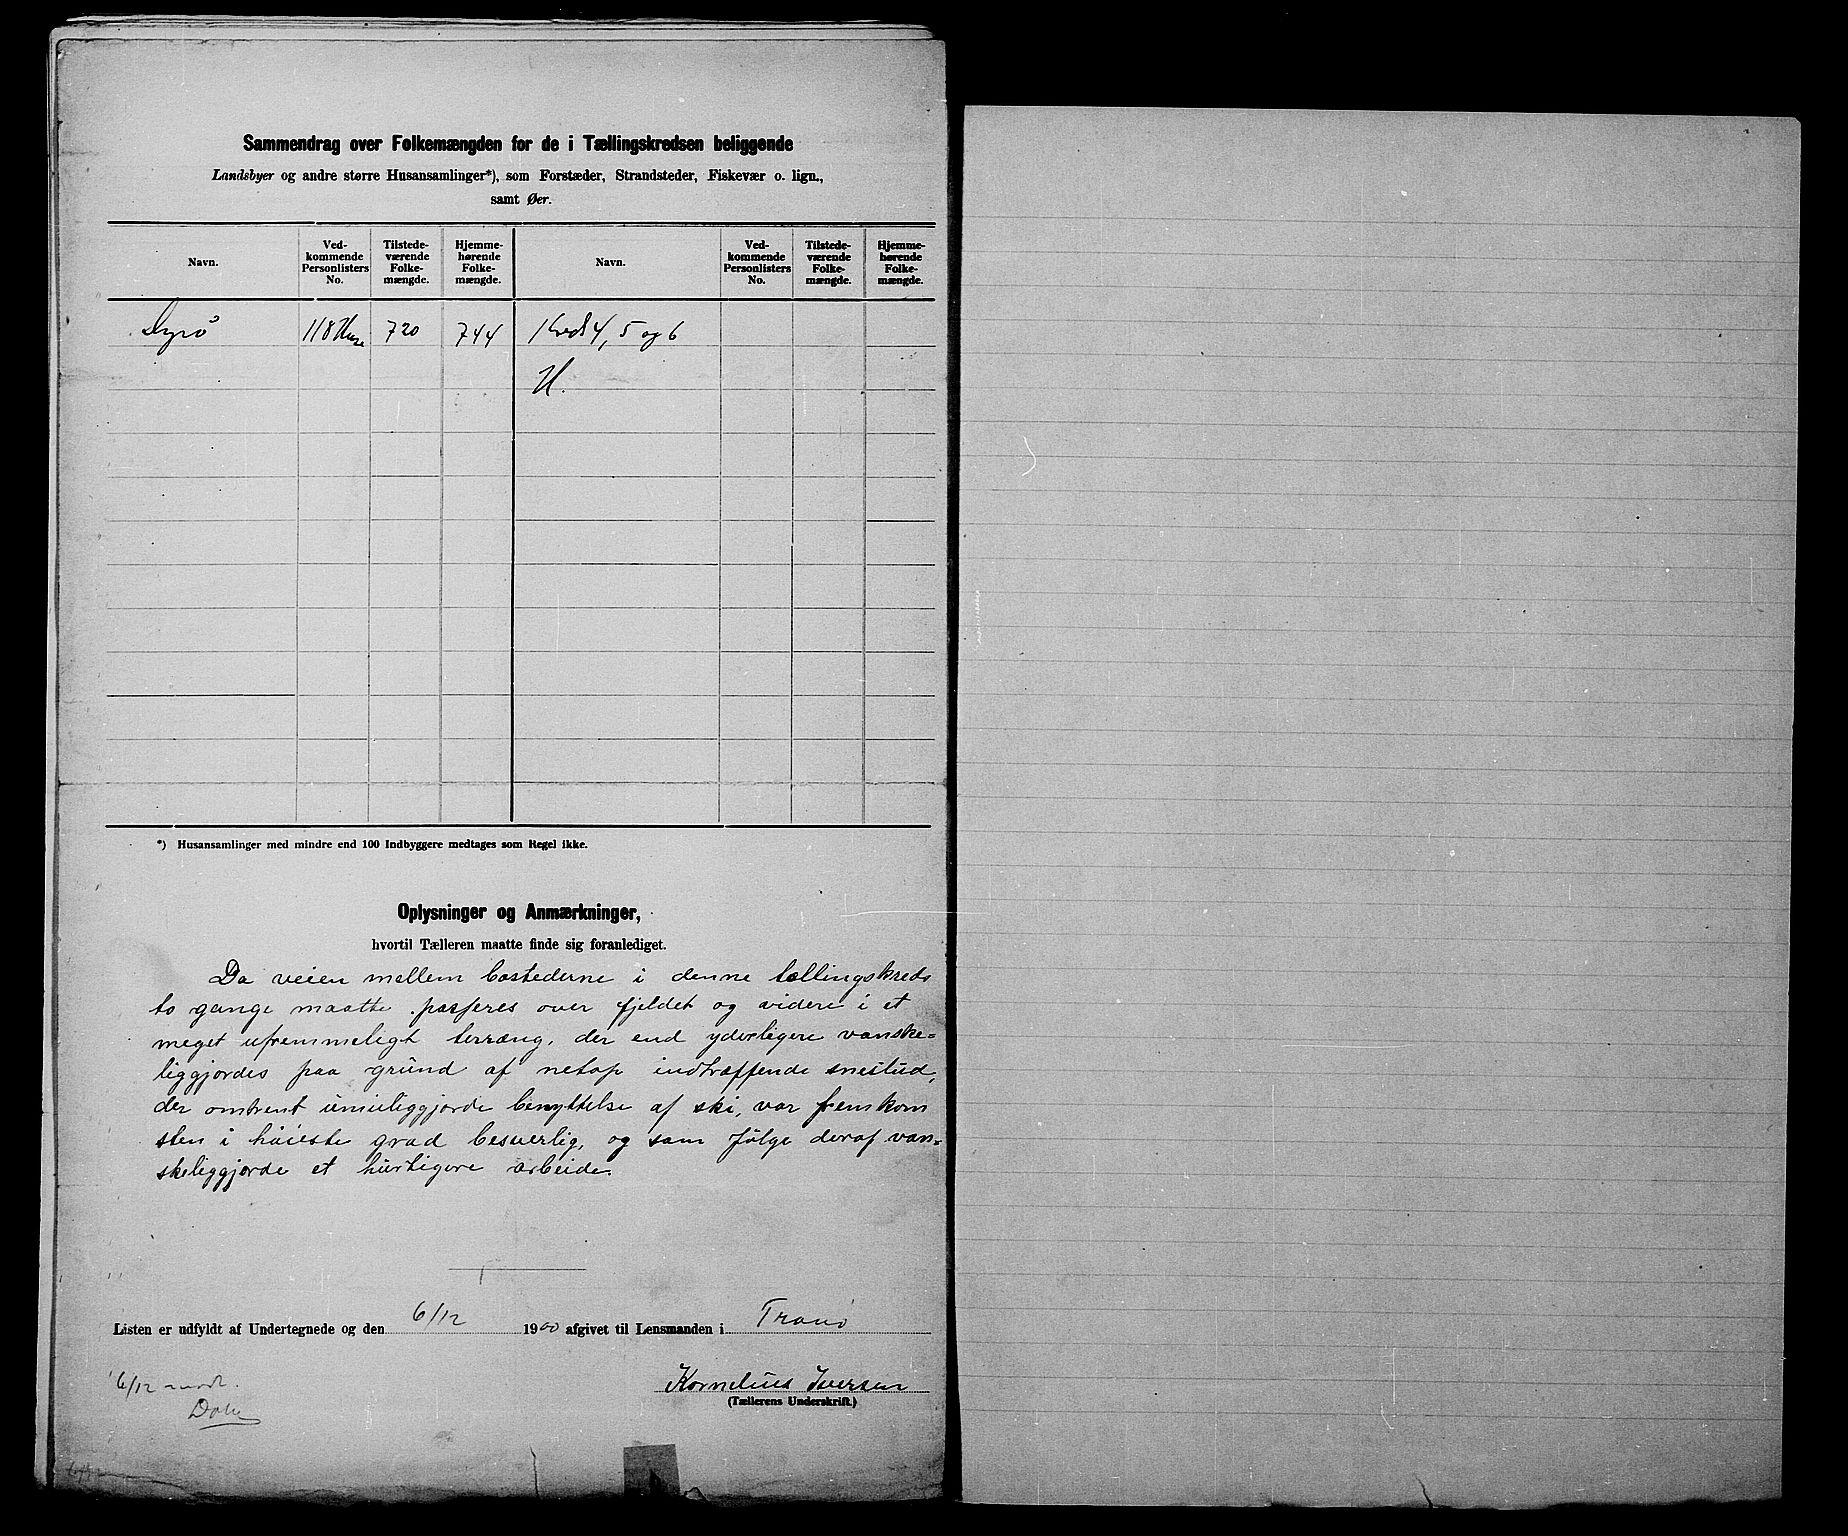 Sammendrag over Folkemængden for de i Tællingskredsen beliggende
Landsbyer og andre større Husansamlinger*), som Forstæder, Strandsteder, Fiskevær o. lign.,
samt Øer.
Navn. Ved-kommende Personlisters No. Tilstede-værende Folke-mængde. Hjemme-hørende Folke-mængde. Navn. Ved-kommende Personlisters No. Tilstede-værende Folke-mængde. Hjemme-hørende Folke-mængde.
Dyrö 118 Huse 720 744 Kreds 4, 5 og 6
H.
*) Husansamlinger med mindre end 100 Indbyggere medtages som Regel ikke.
Oplysninger og Anmærkninger,
hvortil Tælleren maatte finde sig foranlediget.
Da veien mellem bostederne i denne tællingskreds
to gange maatte passeres over fjeldet og videre i et
meget ufremmeligt terræng, der end yderligere vanske=
liggjordes paa grund af netop indtræffende snestud,
der omtrent umuliggjorde benyttelse af ski, var fremkom
sten i høieste grad besverlig, og som følge deraf van=
skeliggjorde et hurtigere arbeide.
Listen er udfyldt af Undertegnede og den 6/12 1900 afgivet til Lensmanden i Tranö
6/12 modt.
Kornelius Iversen
(Tællerens Underskrift.)